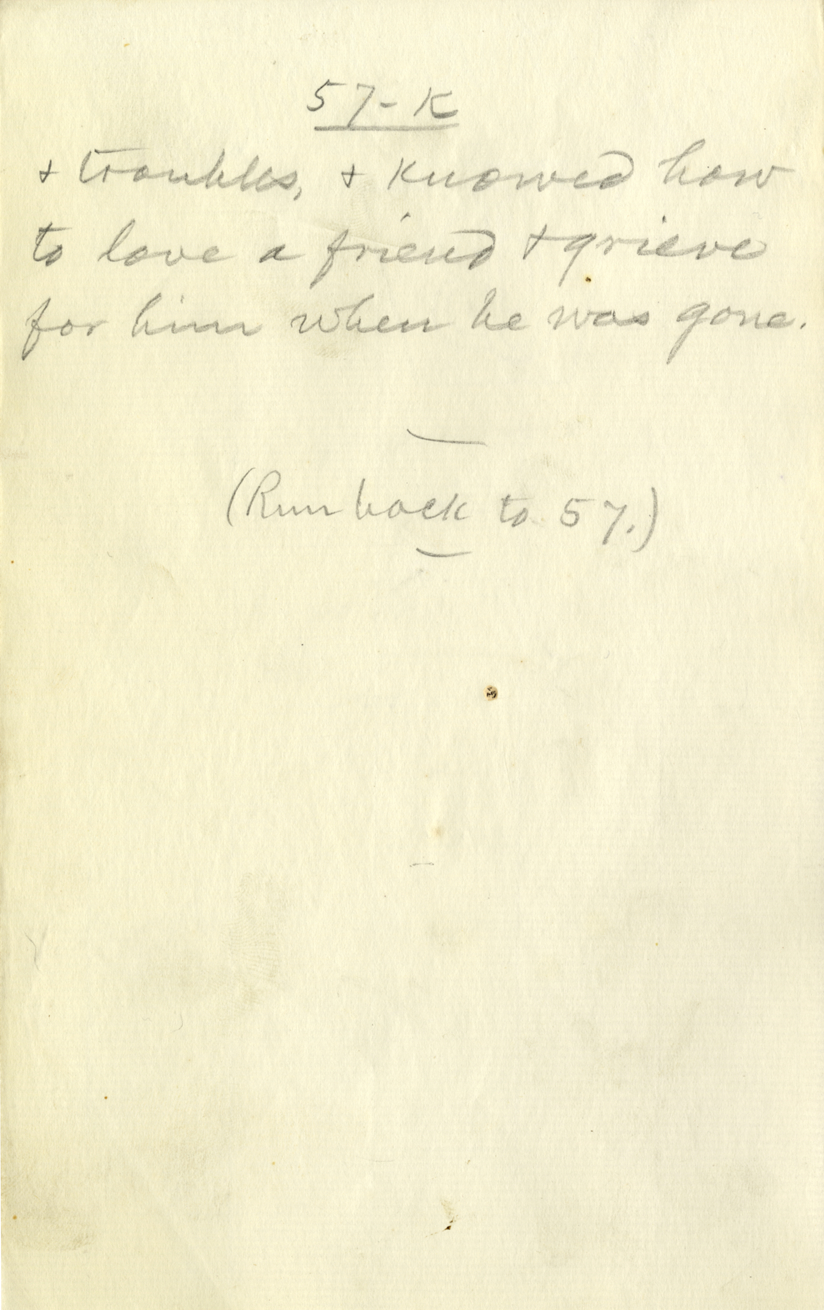 57-K
& troubles, & knowed how
to love a friend & grieve
for him when he was gone.
(Run back to 57.)